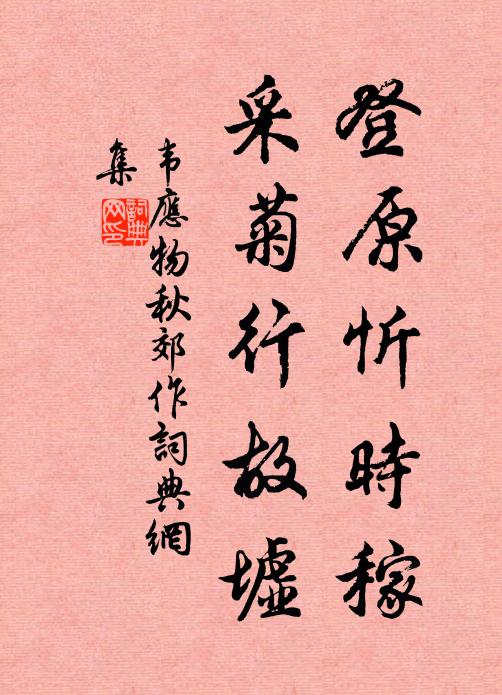 登原忻時稼
采菊行故墟
韦應物秋郊作詞典網
集
詞典網印